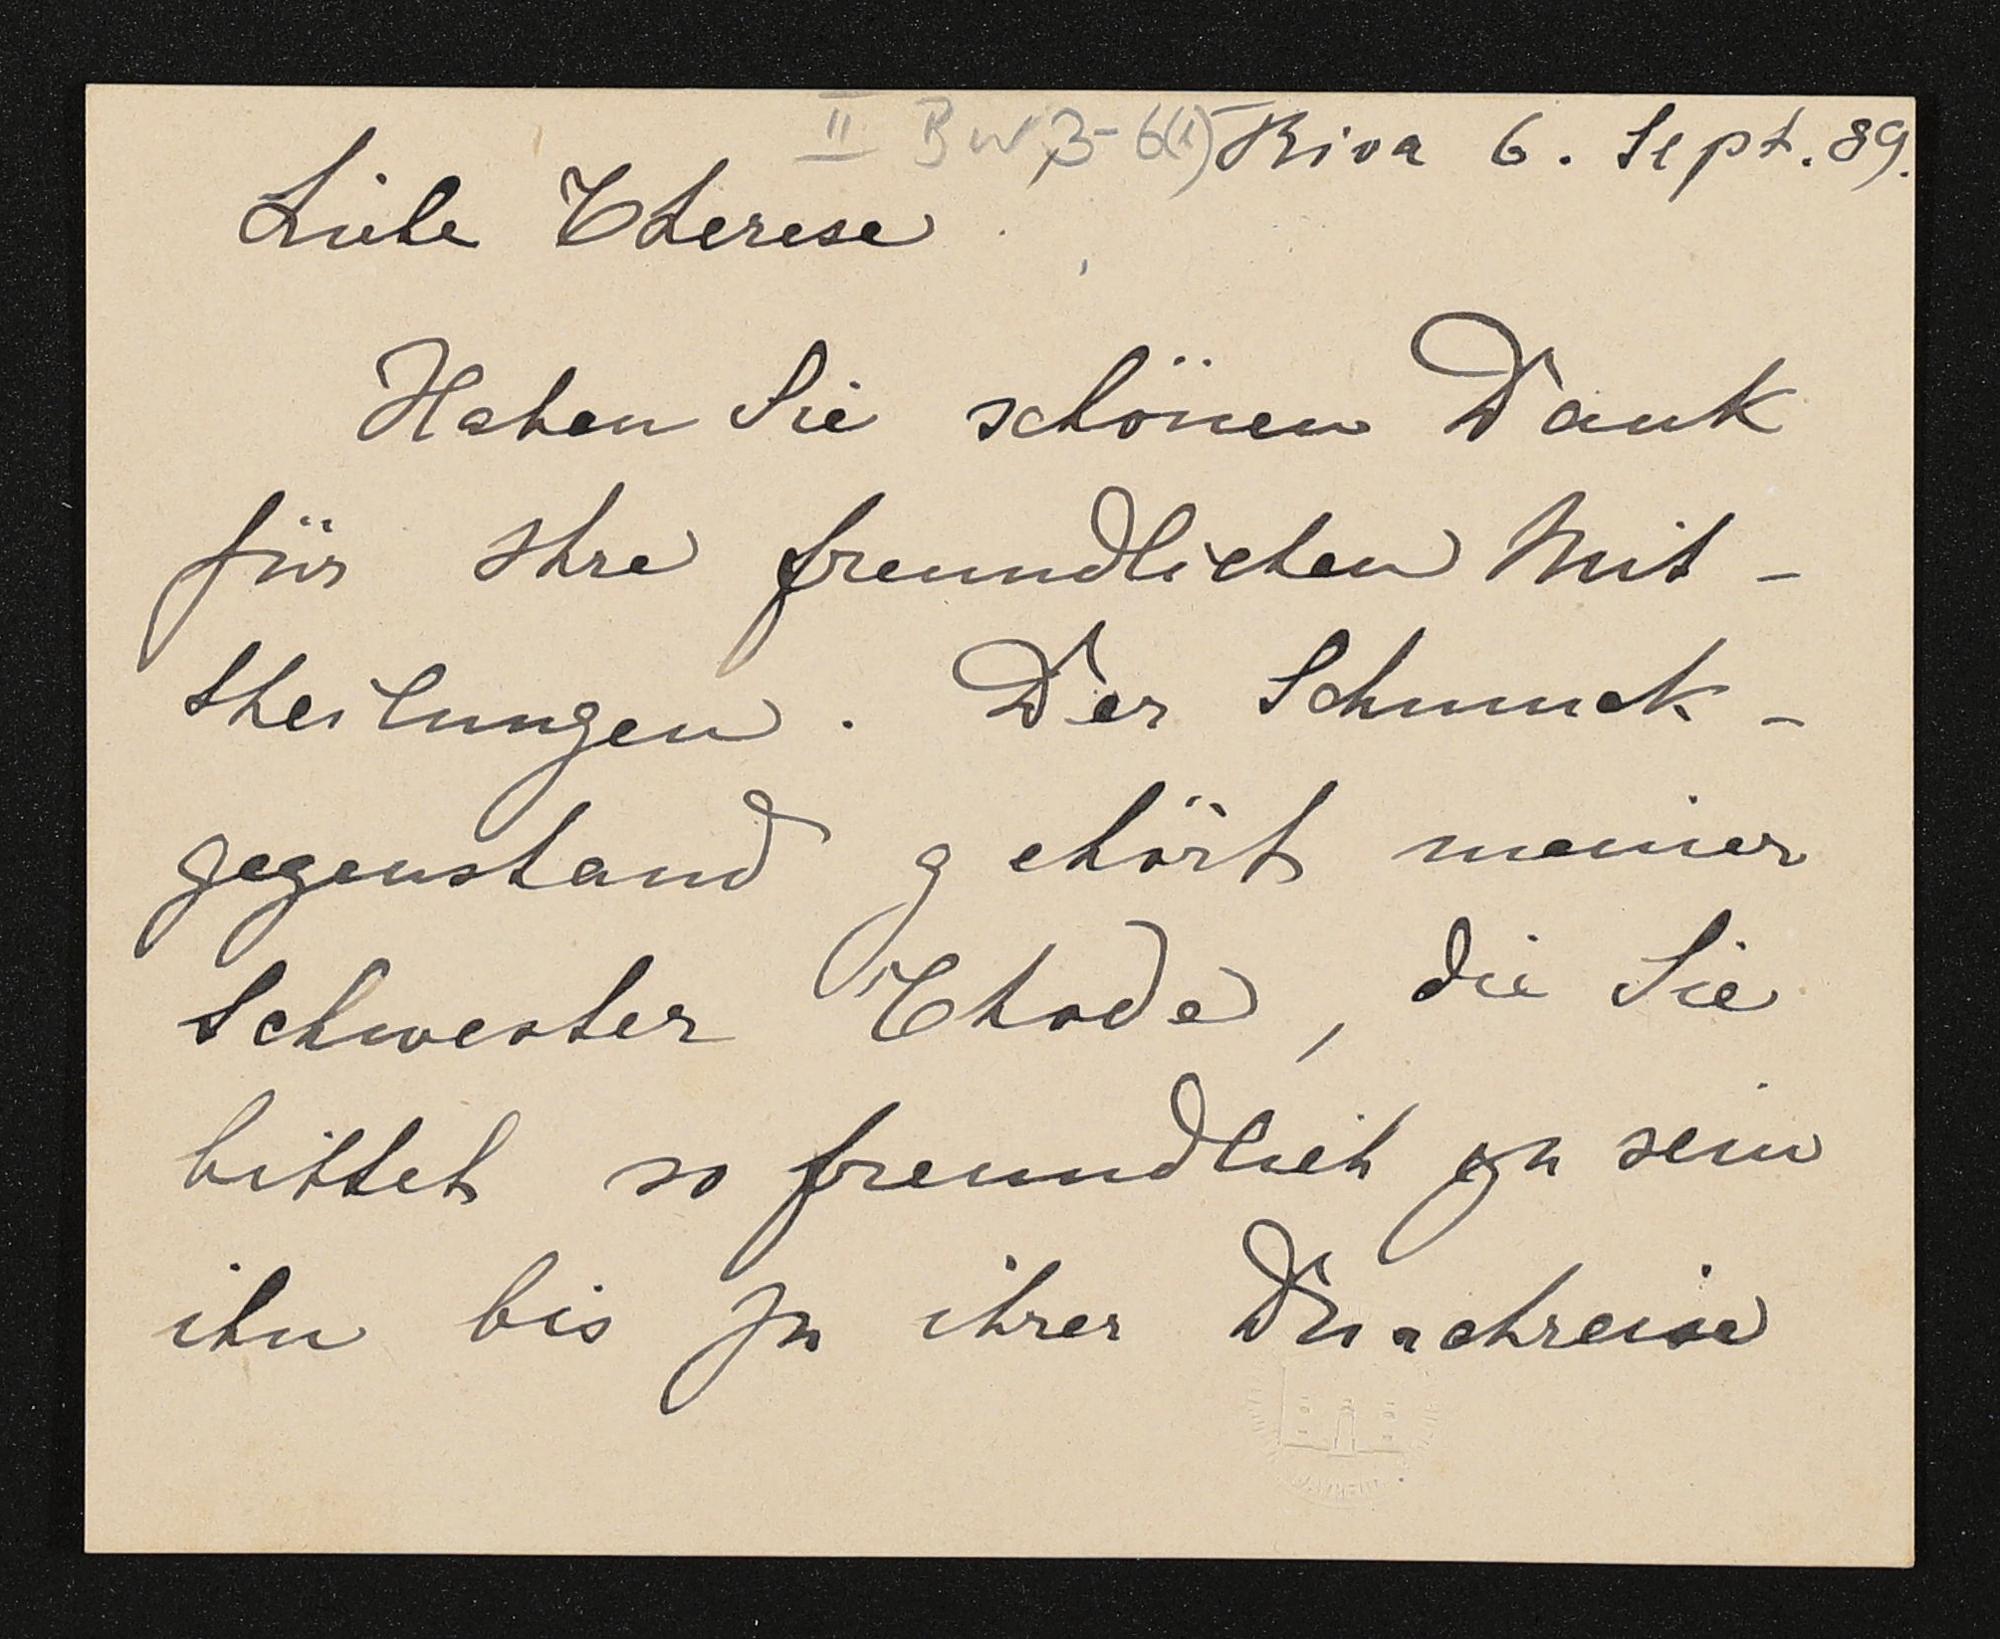 II Bw 3-6(1) Riva 6. Sept. 89.
Liebe Therese
Haben Sie schönen Dank
für Ihre freundlichen Mit-
theilungen. Der Schmuck-
gegenstand gehört meiner
Schwester Thode, die Sie
bittet so freundlich zu sein
ihn bis zu ihrer Durchreise